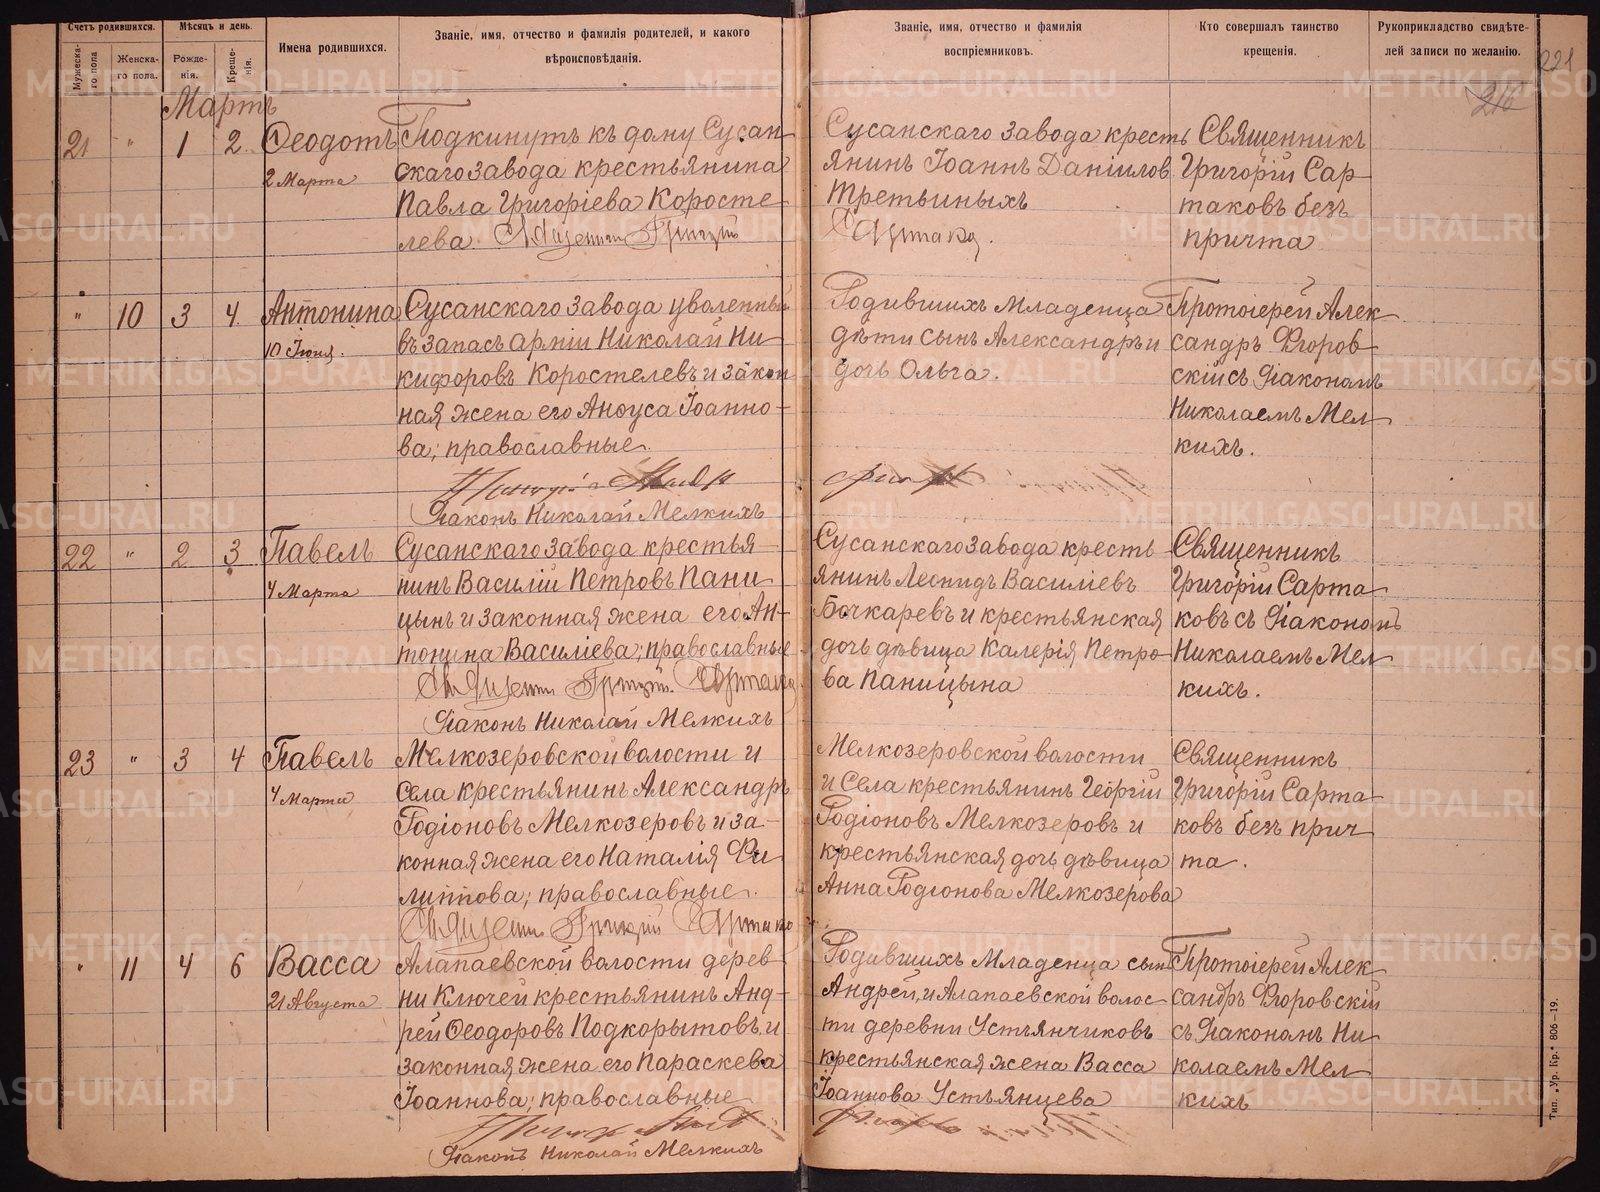 Счетъ родившихся.
Мѣсяцъ и день.
Имена родившихся.
Званіе, имя, отчество и фамилія родителей, и какого
вѣроисповѣданія.
Мужеска-
го пола
Женска-
го пола.
Рожде-
нія.
Креще-
нія.
Званіе, имя, отчество и фамилія
воспріемниковъ.
Кто совершалъ таинство
крещенія.
Рукоприкладство свидѣте-
лей записи по желанію.
221
216
Мартъ
21 " 1 2
Ѳеодотъ
2 Марта
Подкинутъ къ дому Сусан-
скаго завода крестьянина
Павла Григоріева Коросте-
лева. Священникъ Григорій
Сусанскаго завода кресть
янинъ Іоаннъ Даніилов
Третьиныхъ
Сартаков.
Священникъ
Григорій Сар-
таковъ безъ
причта
" 10 3 4
Антонина
10 Іюня.
Сусанскаго завода уволенный
въ запасъ арміи Николай Ни
кифоровъ Коростелевъ и закон
ная жена его Анѳуса Іоанно-
ва; православные.
Діаконъ Николай Мелкихъ
Родившихъ младенца
дѣти сынъ Александръ и
дочь Ольга.
Протоіерей Алек
сандръ Флоров-
скій съ Діакономъ
Николаемъ Мел
кихъ.
22 " 2 3
Павелъ
4 Марта
Сусанскаго завода крестья
нинъ Василій Петровъ Пани
цынъ и законная жена его Ан-
тонина Василіева; православные
Священникъ Григорій Сартаков
Діаконъ Николай Мелкихъ
Сусанскаго завода кресть
янинъ Леонидъ Василіевъ
Бочкаревъ и крестьянская
дочь дѣвица Калерія Петро-
ва Паницына
Священникъ
Григорій Сарта
ковъ съ Діакономъ
Николаемъ Мел
кихъ.
23 " 3 4
Павелъ
4 Марта
Мелкозеровской волости и
села крестьянинъ Александръ
Родіоновъ Мелкозеровъ и за-
конная жена его Наталія Фи
липпова; православные.
Священникъ Григорій Сартаков
Мелкозеровской волости
и села крестьянинъ Георгій
Родіоновъ Мелкозеровъ и
крестьянская дочь дѣвица
Анна Родіонова Мелкозерова
Священникъ
Григорій Сарта-
ковъ безъ прич
та.
" 11 4 6
Васса
21 Августа
Алапаевской волости дерев-
ни Ключей крестьянинъ Анд-
рей Ѳеодоровъ Подкорытовъ и
законная жена его Параскева
Іоаннова; православные
Діаконъ Николай Мелкихъ
Родившихъ младенца сынъ
Андрей, и Алапаевской волос-
ти деревни Устьянчиковъ
крестьянская жена Васса
Іоаннова Устьянцева
Протоіерей Алек
сандръ Флоровскій
съ Діакономъ Ни
колаемъ Мел
кихъ
Тип. „Ур. Кр." 806—19.
METRIKI.GASO-URAL.RU